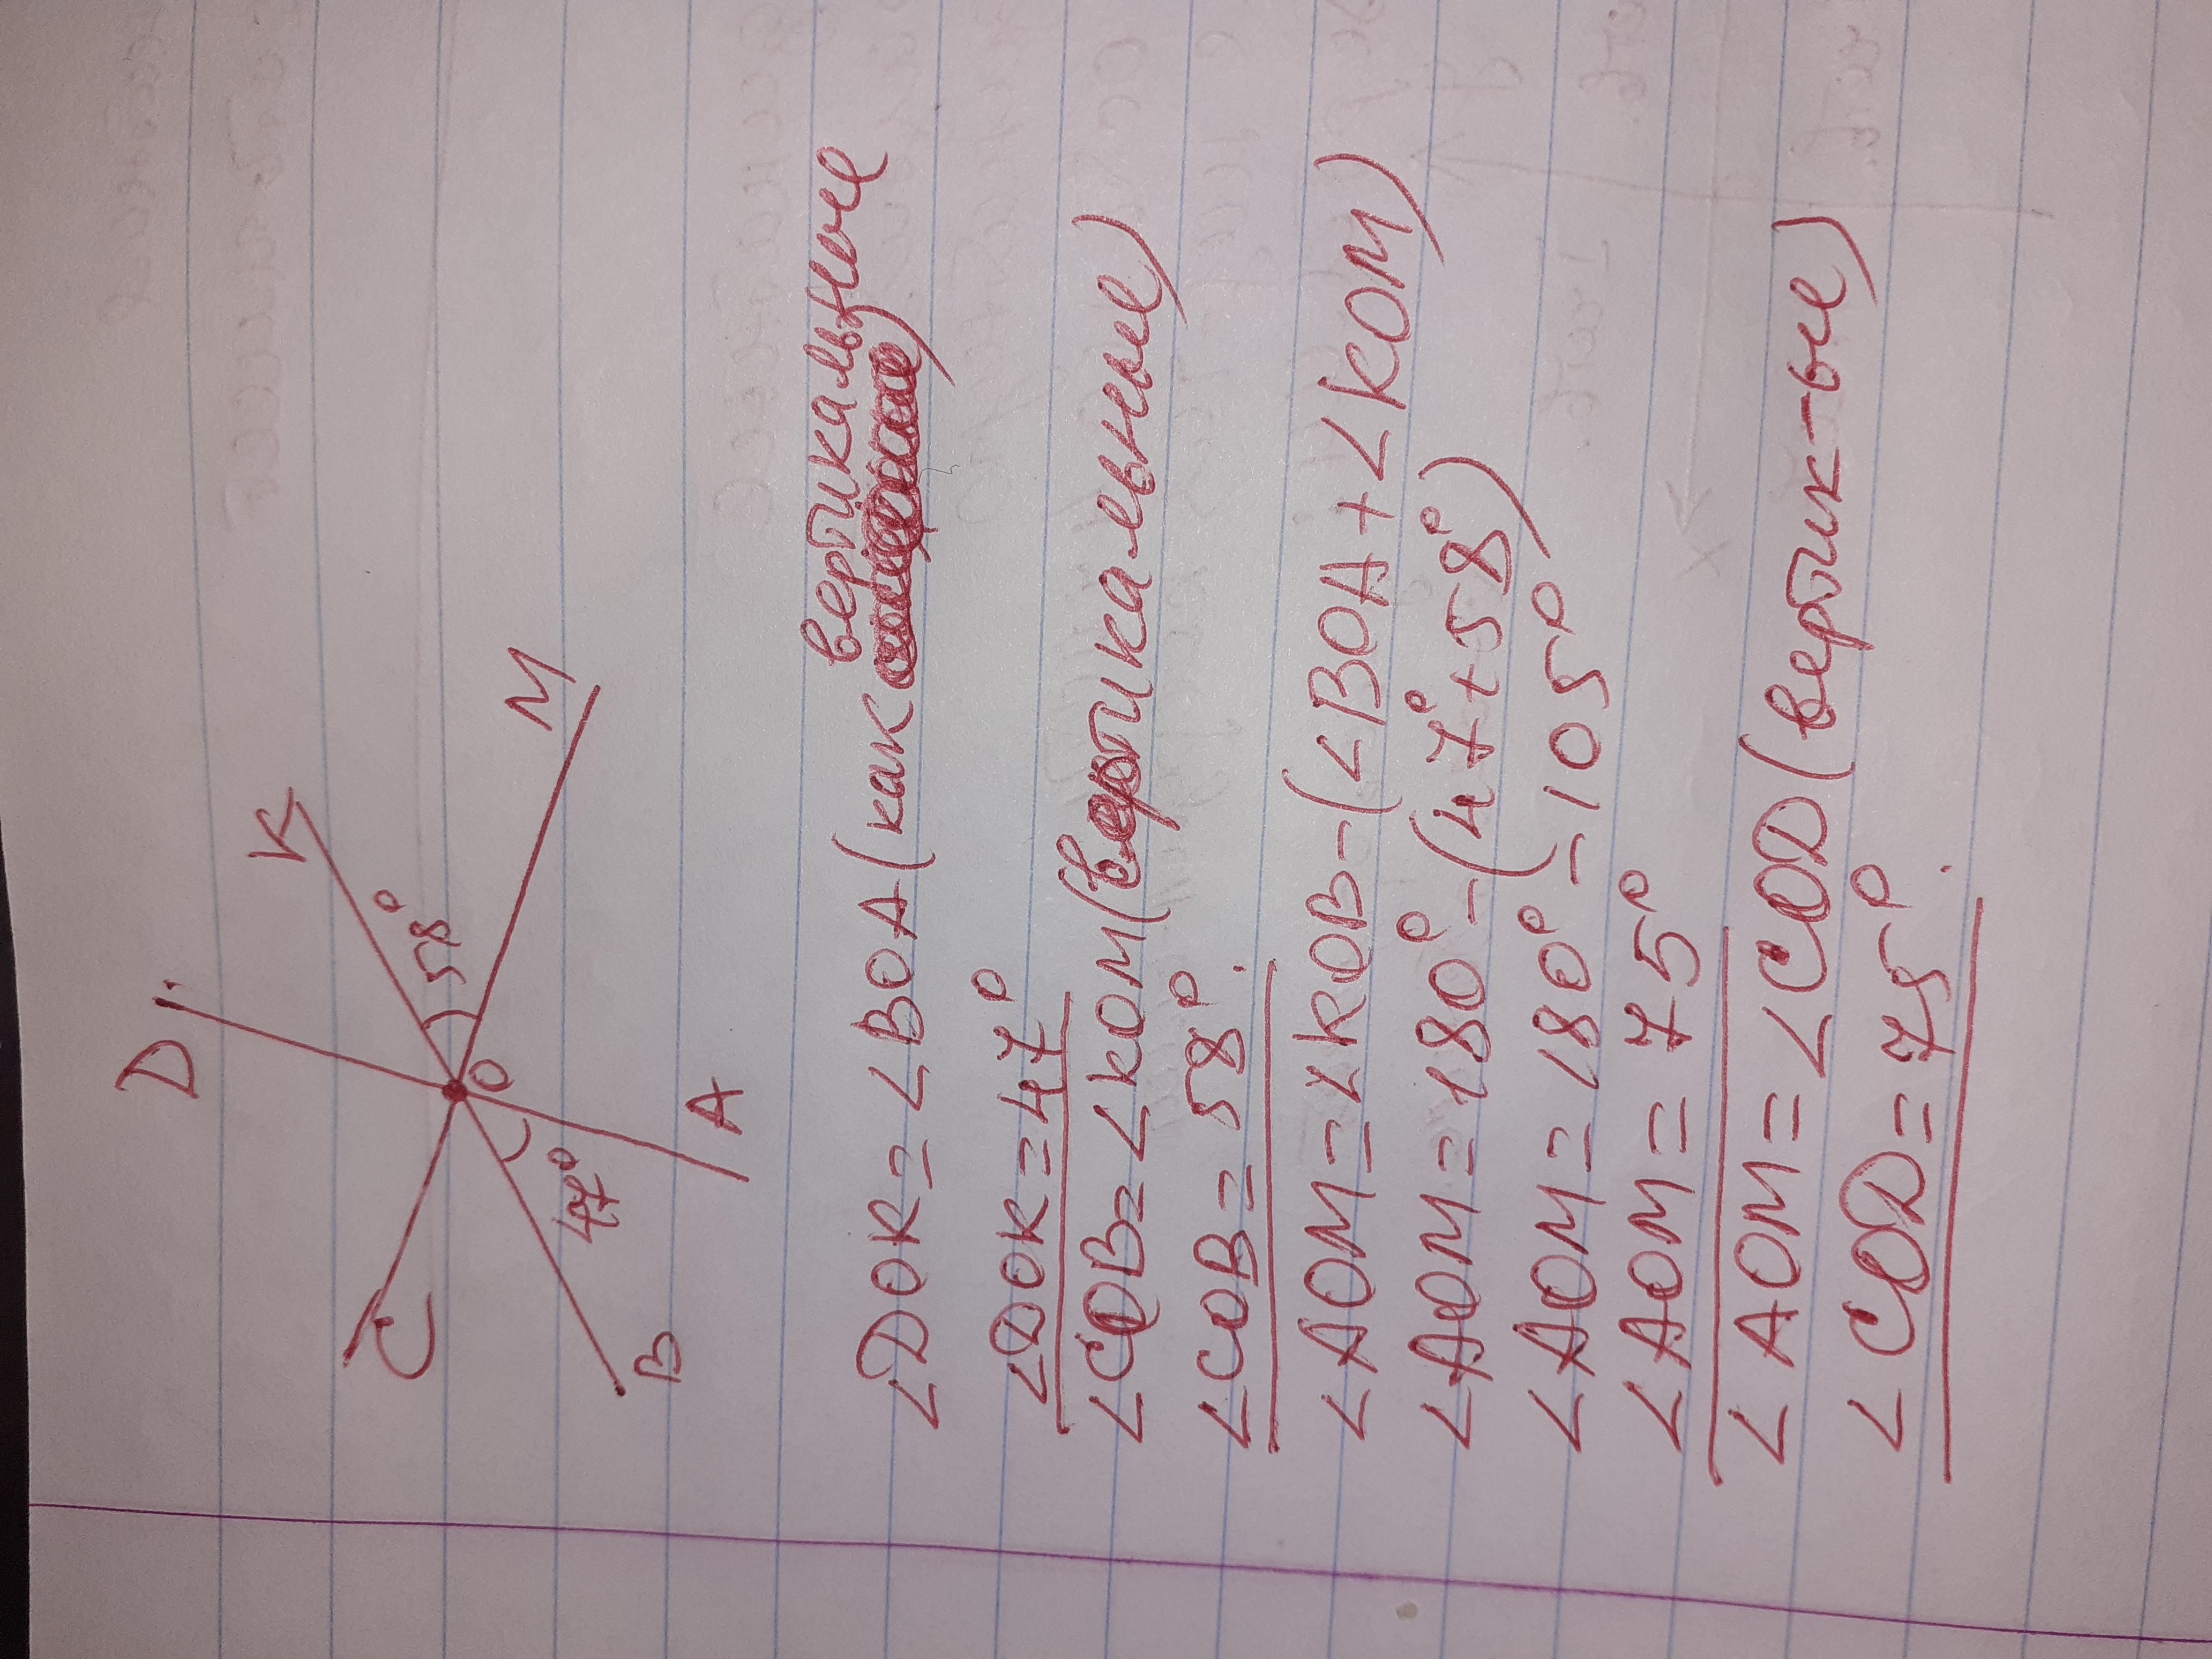 D
K
58°
M
C
O
47°
B
A
∠DOK = ∠BOA (как вертикальные)
∠DOK = 47°
∠COB = ∠KOM (вертикальные)
∠COB = 58°.
∠AOM = ∠KOB - (∠BOA + ∠KOM)
∠AOM = 180° - (47° + 58°)
∠AOM = 180° - 105°
∠AOM = 75°
∠AOM = ∠COD (вертик-ые)
∠COD = 75°.